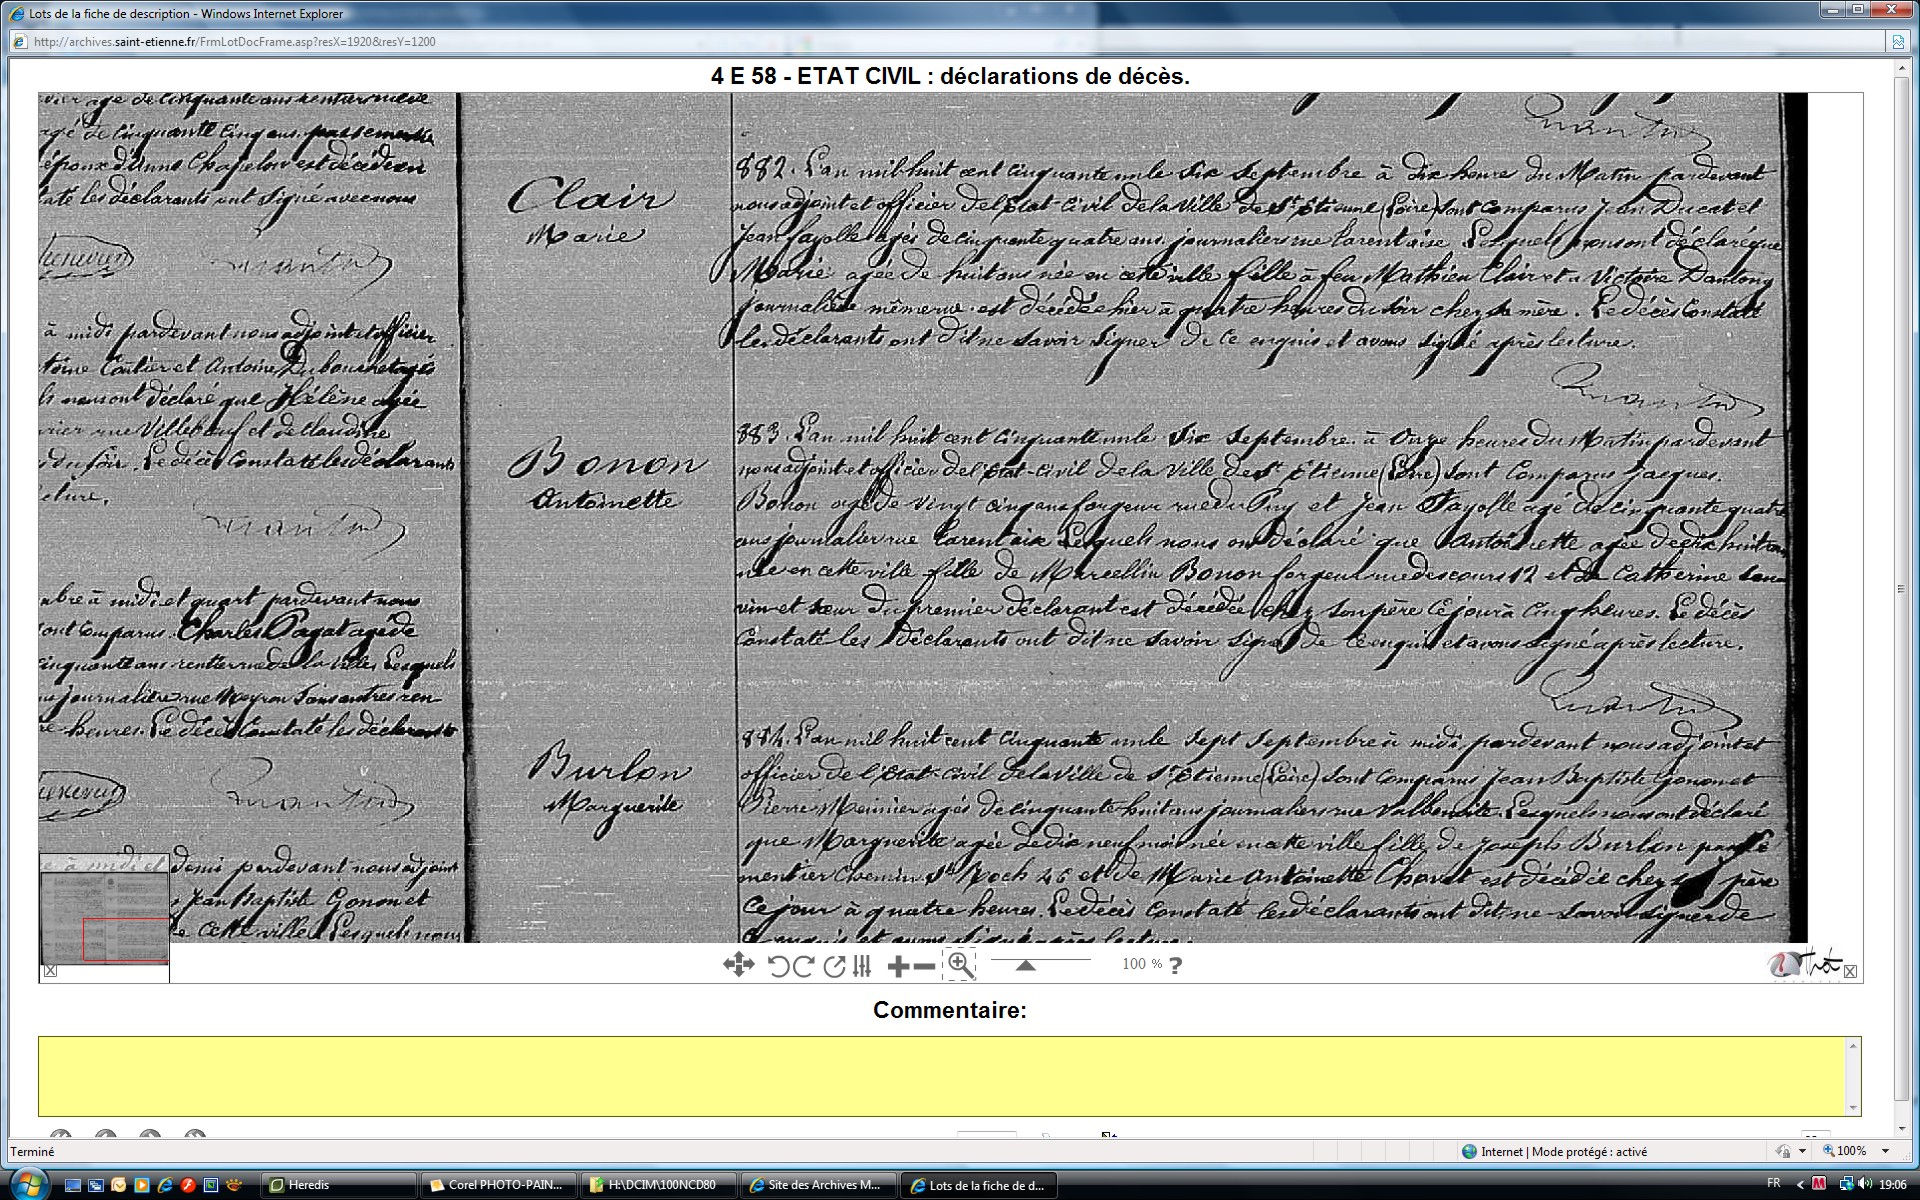 Lots de la fiche de description - Windows Internet Explorer
http://archives.saint-etienne.fr/FrmLotDocFrame.asp?resX=1920&resY=1200
4 E 58 - ETAT CIVIL : déclarations de décès.
agé de cinquante cinq ans passementier
époux d'Anne Chapelon est décédé en
les déclarants ont signé avec nous
à midi pardevant nous adjoint et officier
et Antoine Dubouchet agés
nous ont déclaré que Hélène agée
rue Villebœuf et de Claudine
du soir. Le décès constaté les déclarants
lecture.
à midi et quart pardevant nous
sont comparus. Charles Pagat agé de
cinquante ans rentier rue de la Lesquels
journalière rue Neyron
heures. Le décès constaté les déclarants
demi pardevant nous adjoint
Jean Baptiste Gonon et
cette ville Lesquels nous
Clair
Marie
882. L'an mil huit cent cinquante un le six septembre à dix heure du Matin pardevant
nous adjoint et officier de l'Etat-Civil de la Ville de St Etienne (Loire) sont comparus Jean Ducat et
Jean Fayolle agés de cinquante quatre ans journaliers rue tarentaise Lesquels nous ont déclaré que
Marie agée de huit ans née en cette ville fille à feu Mathieu Clair et à Victoire Dantony
journalière même rue est décédée hier à quatre heures du soir chez sa mère. Le décès constaté
les déclarants ont dit ne savoir signer de ce enquis et avons signé après lecture.
Bonon
Antoinette
883. L'an mil huit cent cinquante un le Six Septembre à Onze heures du Matin pardevant
nous adjoint et officier de l'Etat-Civil de la Ville de St Etienne (Loire) sont comparus jacques
Bonon agé de vingt cinq ans forgeur rue du Puy et Jean Fayolle agé de cinquante quatre
ans journalier rue tarentaise Lesquels nous on déclaré que Antoinette agée de dix huit
née en cette ville fille de Marcellin Bonon forgeur rue des cours 12 et de Catherine
et sœur du premier déclarant est décédée chez son père ce jour à cinq heures. Le décès
Constaté les déclarants ont dit ne savoir signer de ce enquis et avons signé après lecture.
Burlon
Marguerite
884. L'an mil huit cent cinquante un le sept Septembre à midi pardevant nous adjoint et
officier de l'Etat-Civil de la Ville de St Etienne (Loire) sont comparus Jean Baptiste Gonon et
Pierre Meinier agés de cinquante-huit ans journaliers rue Valbenoite. Lesquels nous ont déclaré
que Marguerite agée de dix neuf mois née en cette ville fille de Joseph Burlon passe
mentier Chemin St Roch 46 et de Marie Antoinette Chovet est décédée chez son père
ce jour à quatre heures. Le décès constaté les déclarants ont dit ne savoir signer de
ce enquis et avons signé après lecture.
100 % ?
Commentaire:
Terminé
Internet | Mode protégé : activé
100%
Heredis
Corel PHOTO-PAIN...
H:\DCIM\100NCD80
Site des Archives M...
Lots de la fiche de d...
FR
19:06